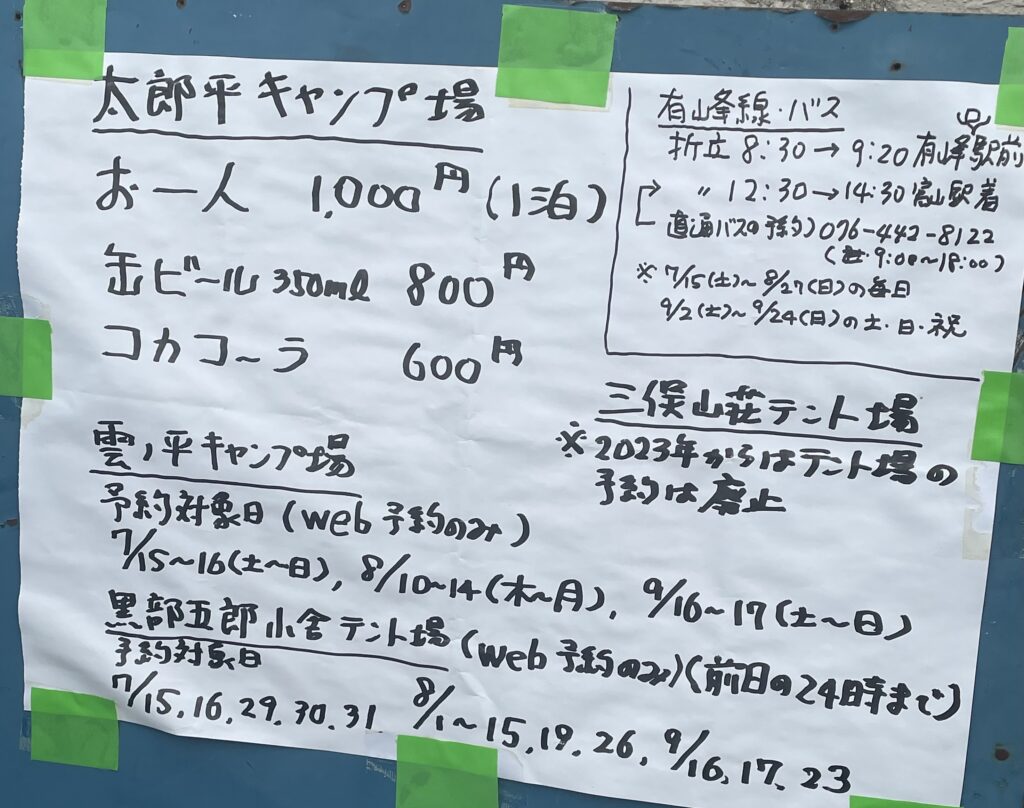 太郎平キャンプ場
お一人 1,000円(1泊)
缶ビール 350ml 800円
コカコーラ 600円
有峰線・バス
折立 8:30→9:20 有峰駅前
〃 12:30→14:30 富山駅着
直通バスの予約)076-442-8122
9:00〜18:00)
※ 7/15(土)〜8/27(日)の毎日
9/2(土)〜9/24(日)の土・日・祝
三俣山荘テント場
※2023年からはテント場の
予約は廃止
雲ノ平キャンプ場
予約対象日(web予約のみ)
7/15〜16(土〜日), 8/10〜14(木〜月), 9/16〜17(土〜日)
黒部五郎小舎テント場(web予約のみ)(前日の24時まで)
予約対象日
7/15.16.29.30.31 8/1〜15,19.26, 9/16.17.23